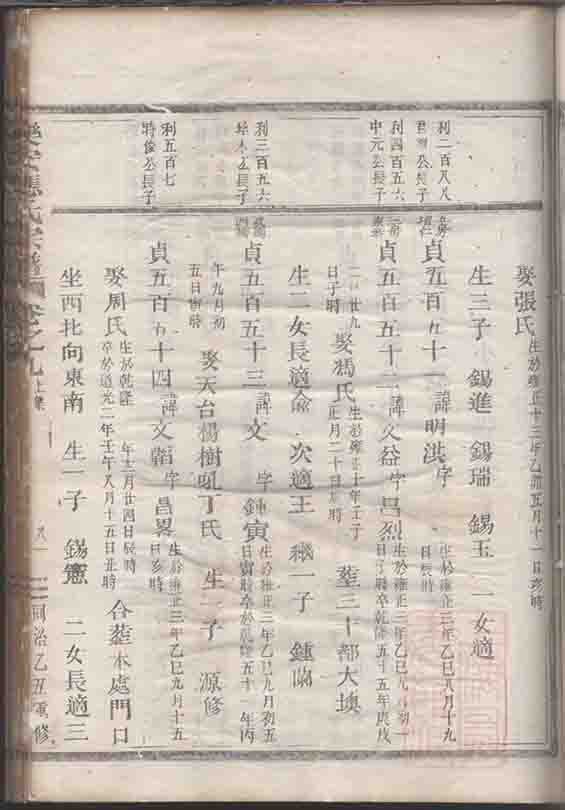 娶張氏 生於雍正十三年乙卯五月十一日亥時
生三子 錫進 錫瑞 錫玉 一女適
利二百八八
君 公長子
貞五百五十一 諱明洪 字 生於雍正三年乙巳八月十九
日辰時
利四百五六
中元公長子
貞五百五十二 諱文益 字呂烈 生於雍正三年乙巳九月初一
日子時卒乾隆五十五年庚戌
二 廿九
日子時 娶馮氏 生於雍正十年壬子
正月二十日 時 葬三十都大墺
生二女長適俞 次適王 繼一子 鍾
利三百五六
公長子
貞五百五十三 諱文 字鍾寅 生於雍正三年乙巳九月初五
日寅時卒於乾隆五十一年丙
午九月初
五日 時 娶天台楊樹 丁氏 生一子 源修
利五百七
特俊公長子
貞五百五十四 諱文韜 字昌畧 生於雍正三年乙巳九月十五
日亥時
娶周氏 生於乾隆 年十二月廿四日辰時
卒於道光二年壬午八月十五日丑時 合葬本處門口
坐西北向東南 生一子 錫憲 二女長適三
氏宗譜 卷之九 上集
同治乙丑重修